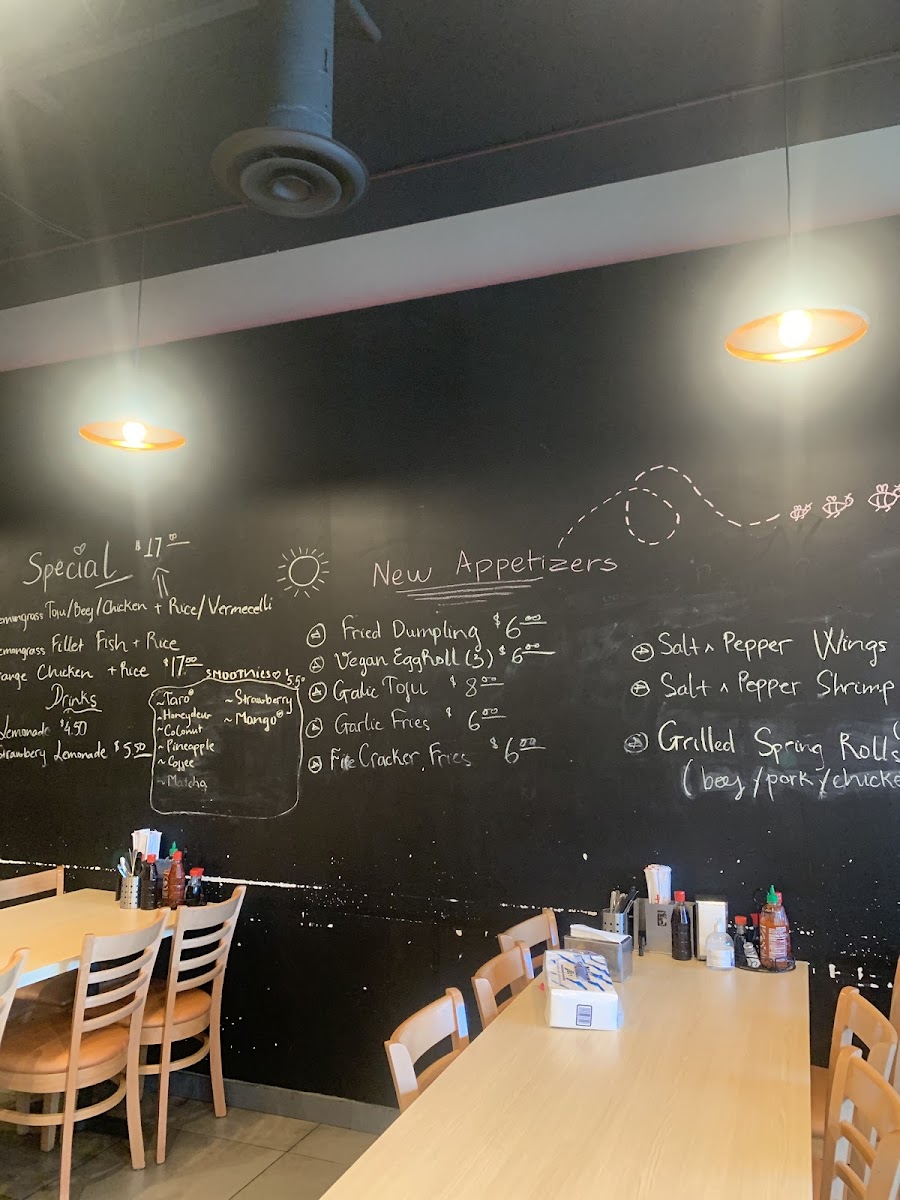 Special $17.00
emongrass Tofu/Beef/Chicken + Rice/Vermecelli
emongrass Fillet Fish + Rice
range Chicken + Rice $17.00
Drinks
Lemonade $4.50
Strawbery Lemonade $5.50
SMOOTHIES $5.50
~Taro
~Honeydew
~Coconut
~Pineapple
~Coffee
~Matcha
~Strawberry
~Mango
New Appetizers
Fried Dumpling $6.00
Vegan EggRoll (3) $6.00
Galic Tofu $8.00
Garlic Fries $6.00
Fire Cracker Fries $6.00
Salt ^ Pepper Wings
Salt ^ Pepper Shrimp
Grilled Spring Rolls
(beef/pork/chicke